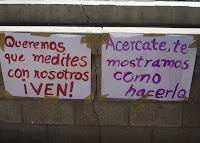 Queremos
que medites
con nosotros
¡VEN!
Acercate, te
mostramos
como
hacerlo